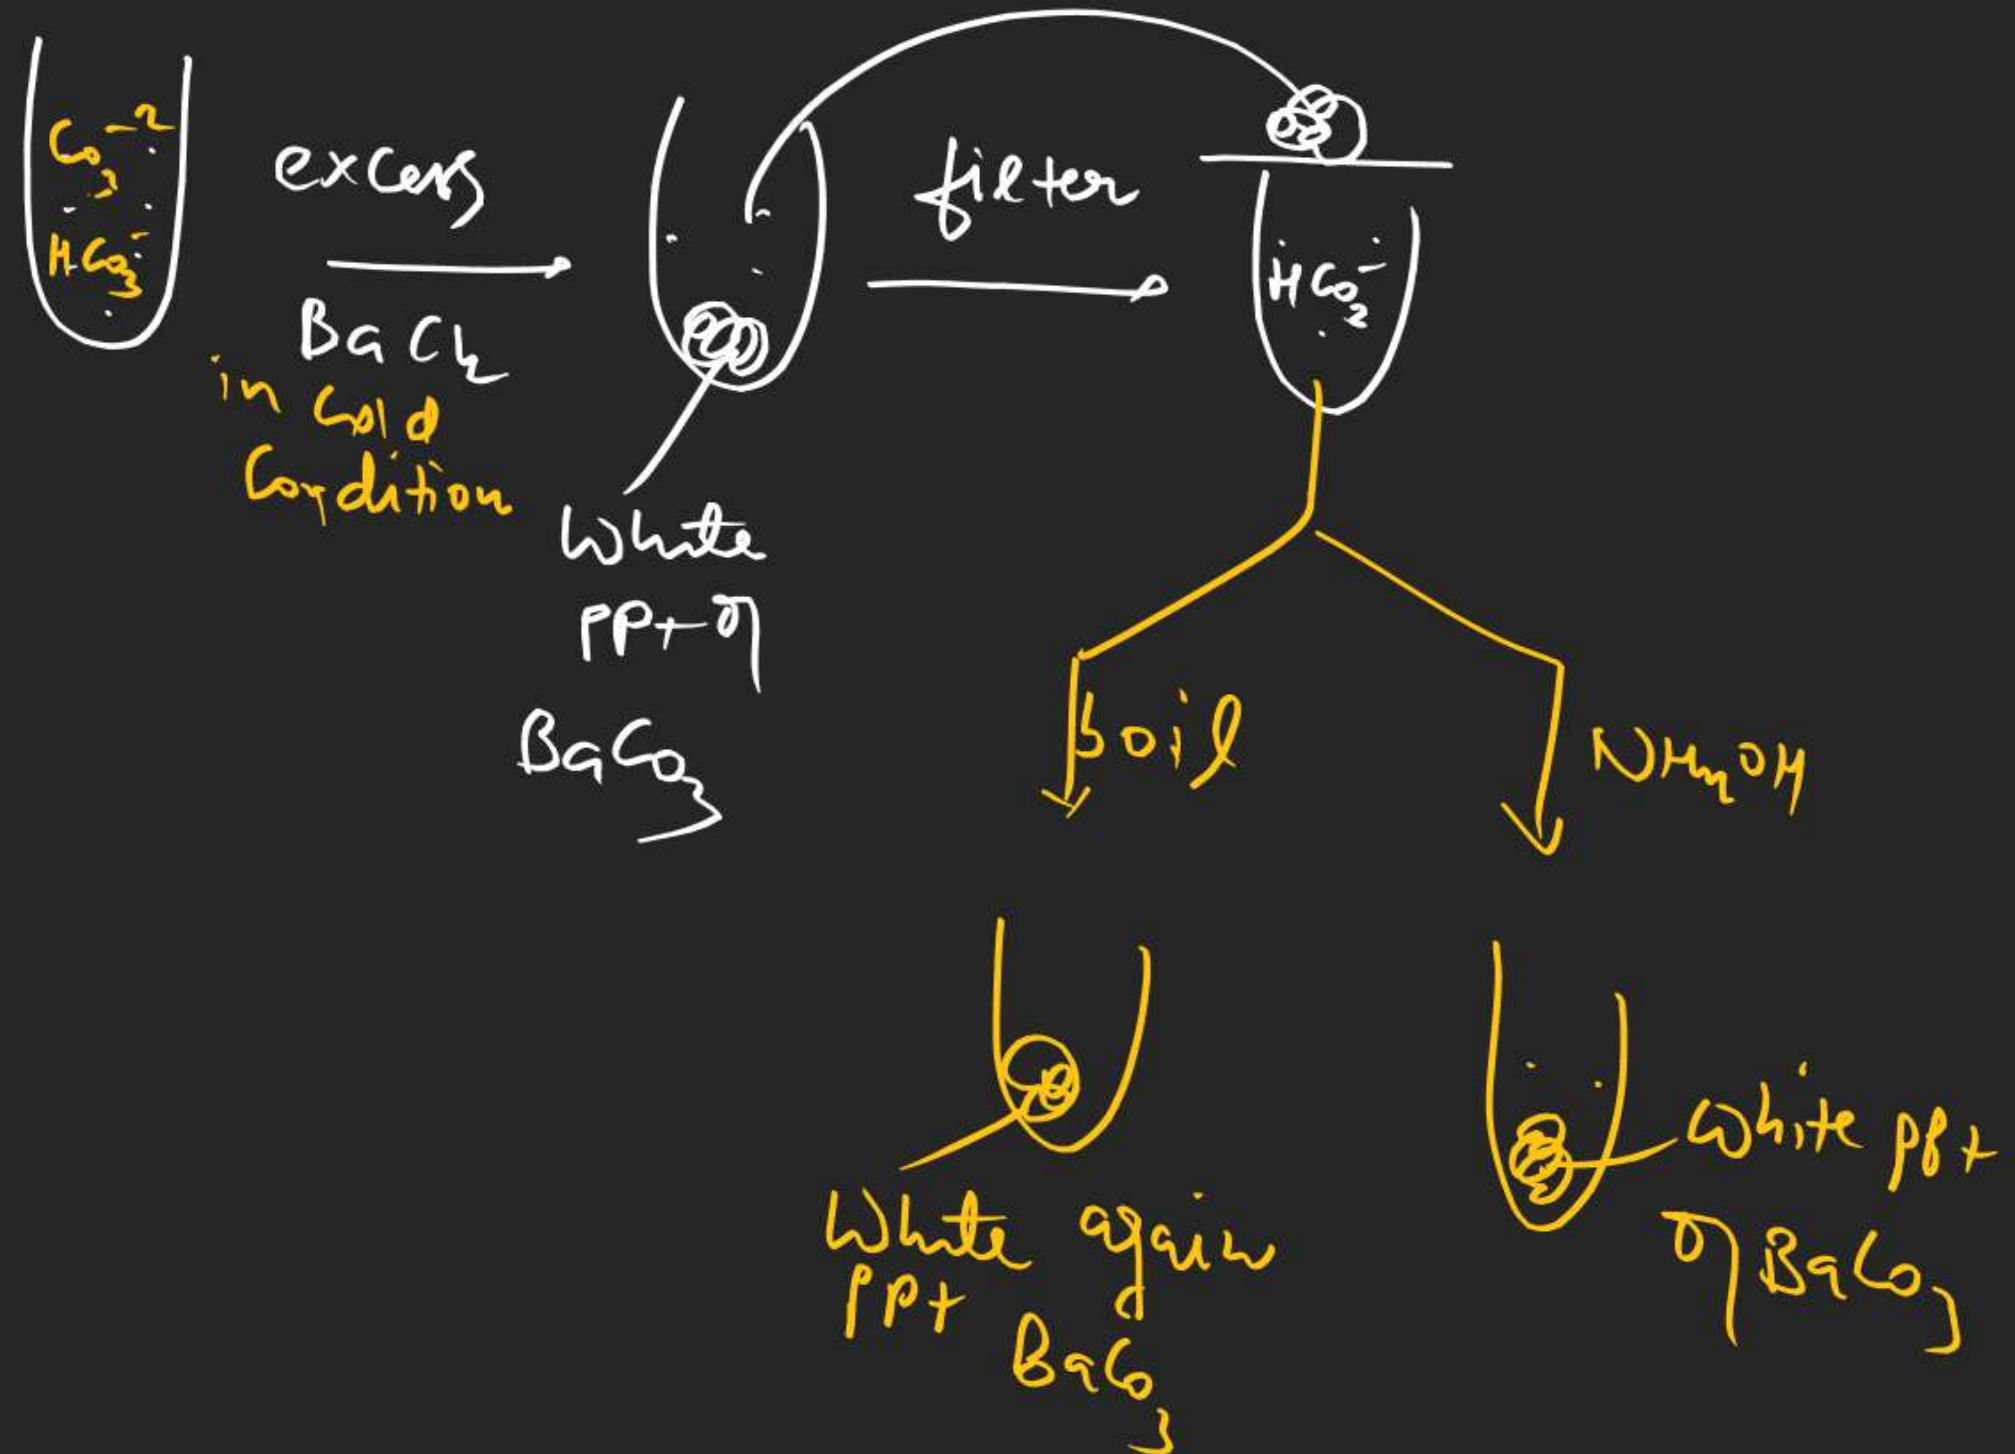 Co₃⁻²
HCo₃⁻
excess
BaCl₂
in Cold
Condition
White
PPt of
BaCo₃
filter
HCo₂⁻
boil
NH₄OH
White again
PPt
BaCo₃
White ppt
of BaCo₃